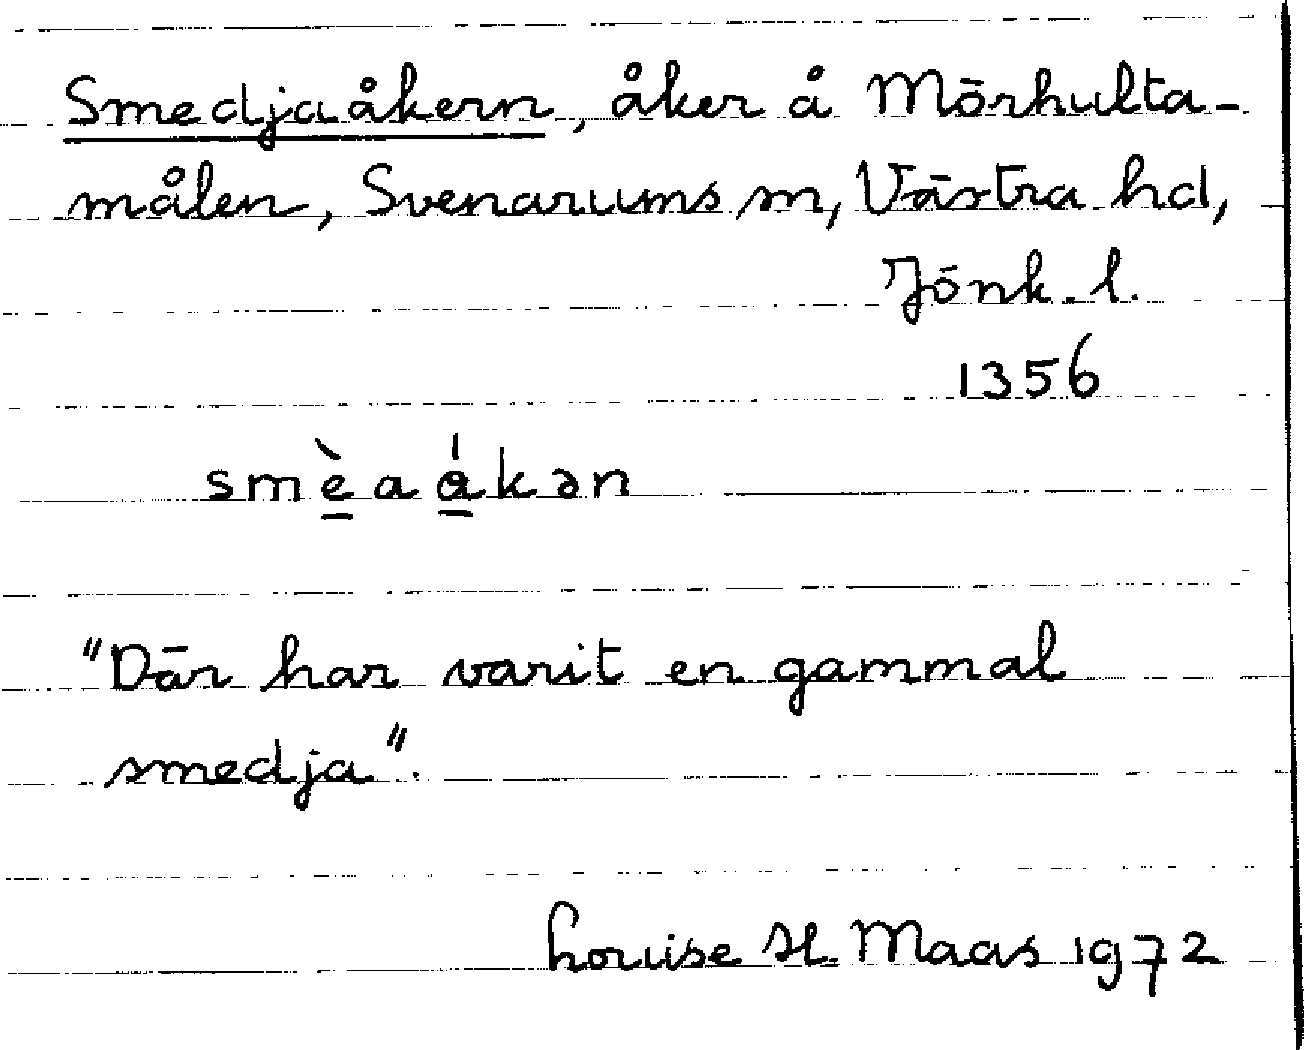 Smedjaåkern, åker å Mörhulta-
målen, Svenarums sn, Västra hd,
Jönk. l.
1356
smèaåkən
"Där har varit en gammal
smedja".
Louise H. Maas 1972